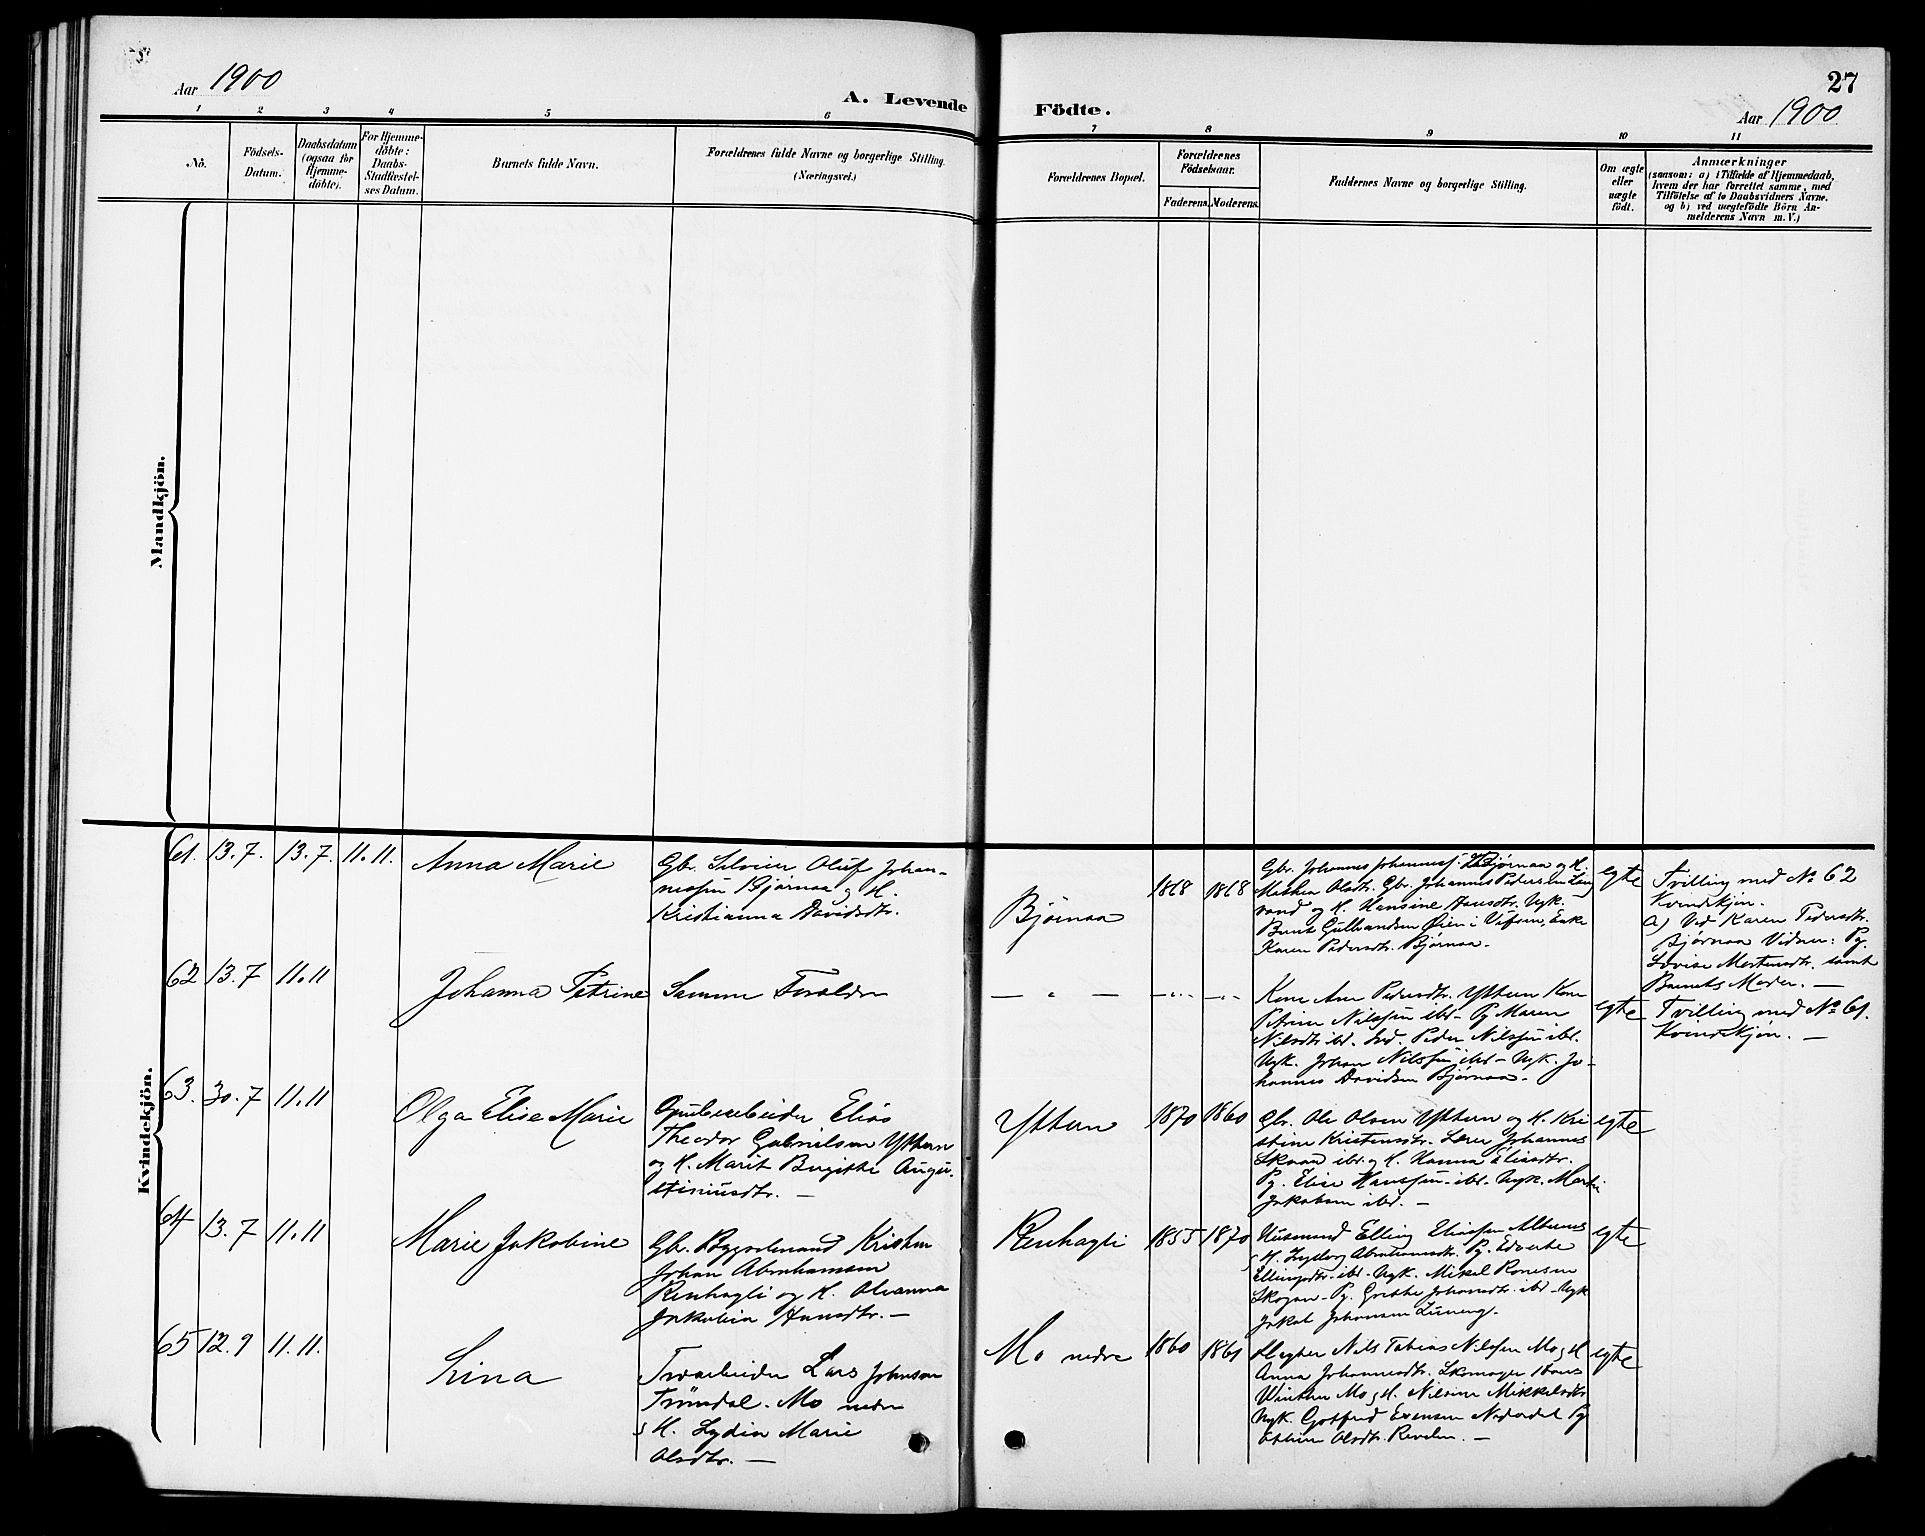 Aar 1900
A. Levende
Födte.
27
Aar 1900
1 2 3 4 5 6 7 8 9 10 11
No.
Födsels-
Datum.
Daabsdatum
(ogsaa for
Hjemme-
döbte).
For Hjemme-
döbte:
Daabs-
Stadfæstel-
ses Datum.
Barnets fulde Navn.
Forældrenes fulde Navne og borgerlige Stilling.
(Næringsvei.)
Forældrenes Bopæl.
Forældrenes
Födselsaar.
Faderens.
Moderens.
Faddernes Navne og borgerlige Stilling.
Om ægte
eller
uægte
födt.
Anmærkninger
(saasom: a) i Tilfælde af Hjemmedaab,
hvem der har forrettet samme, med
Tilföielse af to Daabsvidners Navne.
og b) ved uægtefödte Börn An-
melderens Navn m. V.)
Mandkjön.
Kvindekjön.
61. 13.7. 13.7. 11.11.
Anna Marie
Gbr. Oluf Johan-
nessen Bjørnaa og H.
Kristianna Davidsdtr.
Bjørnaa
1868
1868
Gbr. Johannes Johanness. Bjørnaa og H.
Olsdtr. Gbr. Johannes Pedersen
og H. Hansine Hansdtr. Ugk.
Øien i Vefsen, Enke
Karen Pedersdtr. Bjørnaa.
egte
Tvilling med No 62
Kvindekjøn.
a) Ved Karen Pedersdtr.
Bjørnaa Vidner: Pg.
Lovise Mortensdtr. samt
Barnets Moder. —
62 13.7 11.11
Johanna Petrine
Samme Forældre
— " —
— " —
— " —
Kone Ane Pedersdtr. Ytteren Kone
Petrine Nilssen ibd. Pg Maren
Nilsdtr ibd. Peder Nilssen ibd.
Ugk. Johan Nilssen ibd — Ugk. Jo-
hannes Davidsen Bjørnaa.
egte
Tvilling med No 61.
Kvindekjøn. —
63. 30.7 11.11
Olga Elise Marie
Grubearbeider Eliás
Theodor Gabrielsen Ytteren
og H. Marit Birgitte Augu-
stinusdtr. —
Ytteren
1870
1860
Gbr. Ole Olsen Ytteren og H. Kri
stine Kristensdtr. Lærer Johannes
ibd. og H. Hanna Eliasdtr.
Pg. Elise Hanssen ibd. Ugk. Martin
Jakobsen ibd. —
egte
64 13.7 11.11
Marie Jakobine
Gb. Bygselmand Kristen
Johan Abrahamsen
Renhagli og H. Olvanna
Jakobia Hansdtr. —
Renhagli
1855
1870
Husmand Elling Eliassen Alternes
H. Abrahamsdtr. Pg.
Ellingsdtr. ibd. Ugk. Mikal
Skogan. Pg. Grethe Johansdtr. ibd — Ugk
Jakob Johansen
egte
65 12.9 11.11.
Lina
Lars Johnsen
Trøndal. Mo nedre
og H. Lydia Marie
Olsdtr. —
Mo nedre
1860
1861
Nils Tobias Nilssen Mo og H
Anna Johannesdtr. Skomager Hans
Winther Mo og H. Nilsine Mikkelsdtr
Ugk. Gotfred Evensen Pg
Olsdtr. Revelen. —
egte